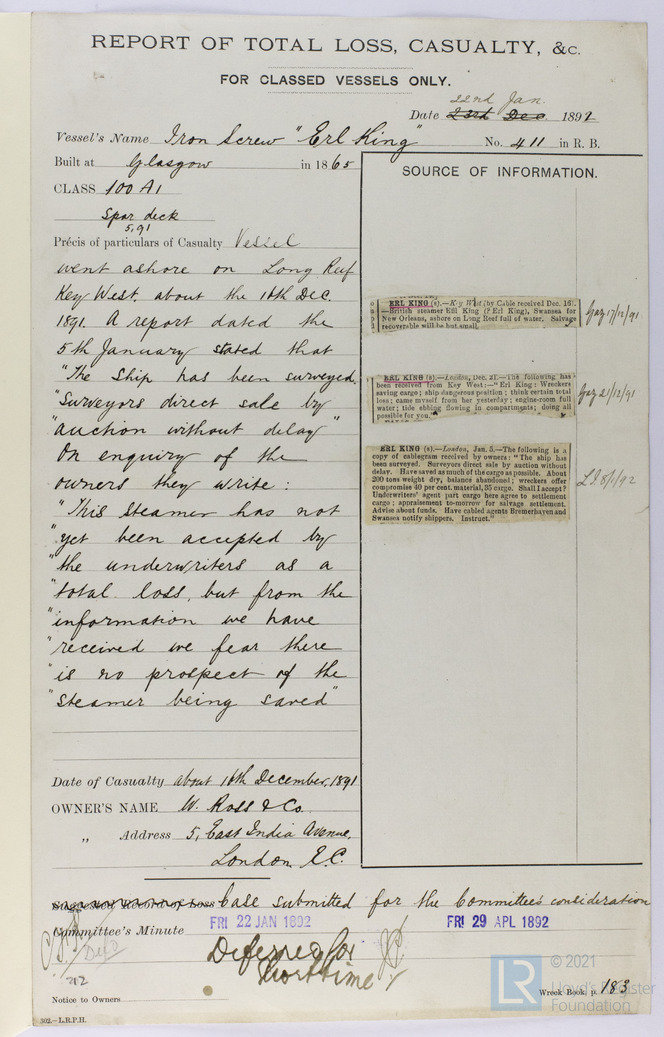 REPORT OF TOTAL LOSS, CASUALTY, &c.
FOR CLASSED VESSELS ONLY.
22nd Jan.
Date 23rd Dec 1892
Vessel's Name Iron Screw "Erl King"
No. 411 in R. B.
Built at Glasgow in 1865
CLASS 100 A1
Spar deck
5,91
Précis of particulars of Casualty Vessel
went ashore on Long Reef
Key West, about the 16th Dec.
1891. A report dated the
5th January stated that
"The Ship has been surveyed.
"Surveyors direct sale by
"auction without delay"
On enquiry of the
owners they write:
"This steamer has not
"yet been accepted by
"the underwriters as a
"total loss, but from the
"information we have
"received we fear there
"is no prospect of the
"steamer being saved"
Date of Casualty about 16th December, 1891
OWNER'S NAME W. Ross & Co.
„ Address 5, East India Avenue,
London, E.C.
SOURCE OF INFORMATION.
ERL KING (s).—Key West (by Cable received Dec. 16).
—British steamer Erl King (? Erl King), Swansea for
New Orleans, ashore on Long Reef full of water. Salvage
recoverable will be but small.
Gaz 17/12/91
ERL KING (s).—London, Dec. 21.—The following has
been received from Key West:—"Erl King: Wreckers
saving cargo; ship dangerous position; think certain total
loss; came myself from her yesterday; engine-room full
water; tide ebbing flowing in compartments; doing all
possible for you."
Gaz 21/12/91
ERL KING (s).—London, Jan. 5.—The following is a
copy of cablegram received by owners: "The ship has
been surveyed. Surveyors direct sale by auction without
delay. Have saved as much of the cargo as possible. About
200 tons weight dry, balance abandoned; wreckers offer
compromise 40 per cent. material, 35 cargo. Shall I accept?
Underwriters' agent part cargo here agree to settlement
cargo; appraisement to-morrow for salvage settlement.
Advise about funds. Have cabled agents Bremerhaven and
Swansea notify shippers. Instruct."
LL 8/1/92
Suggested Record of Loss Case submitted for the Committee's consideration
Committee's Minute
FRI 22 JAN 1892
FRI 29 APL 1892
Deferred for
Short time
Notice to Owners
302.—L.R.P.H.
Wreck Book, p. 183
LR
© 2021
Lloyd's Register
Foundation